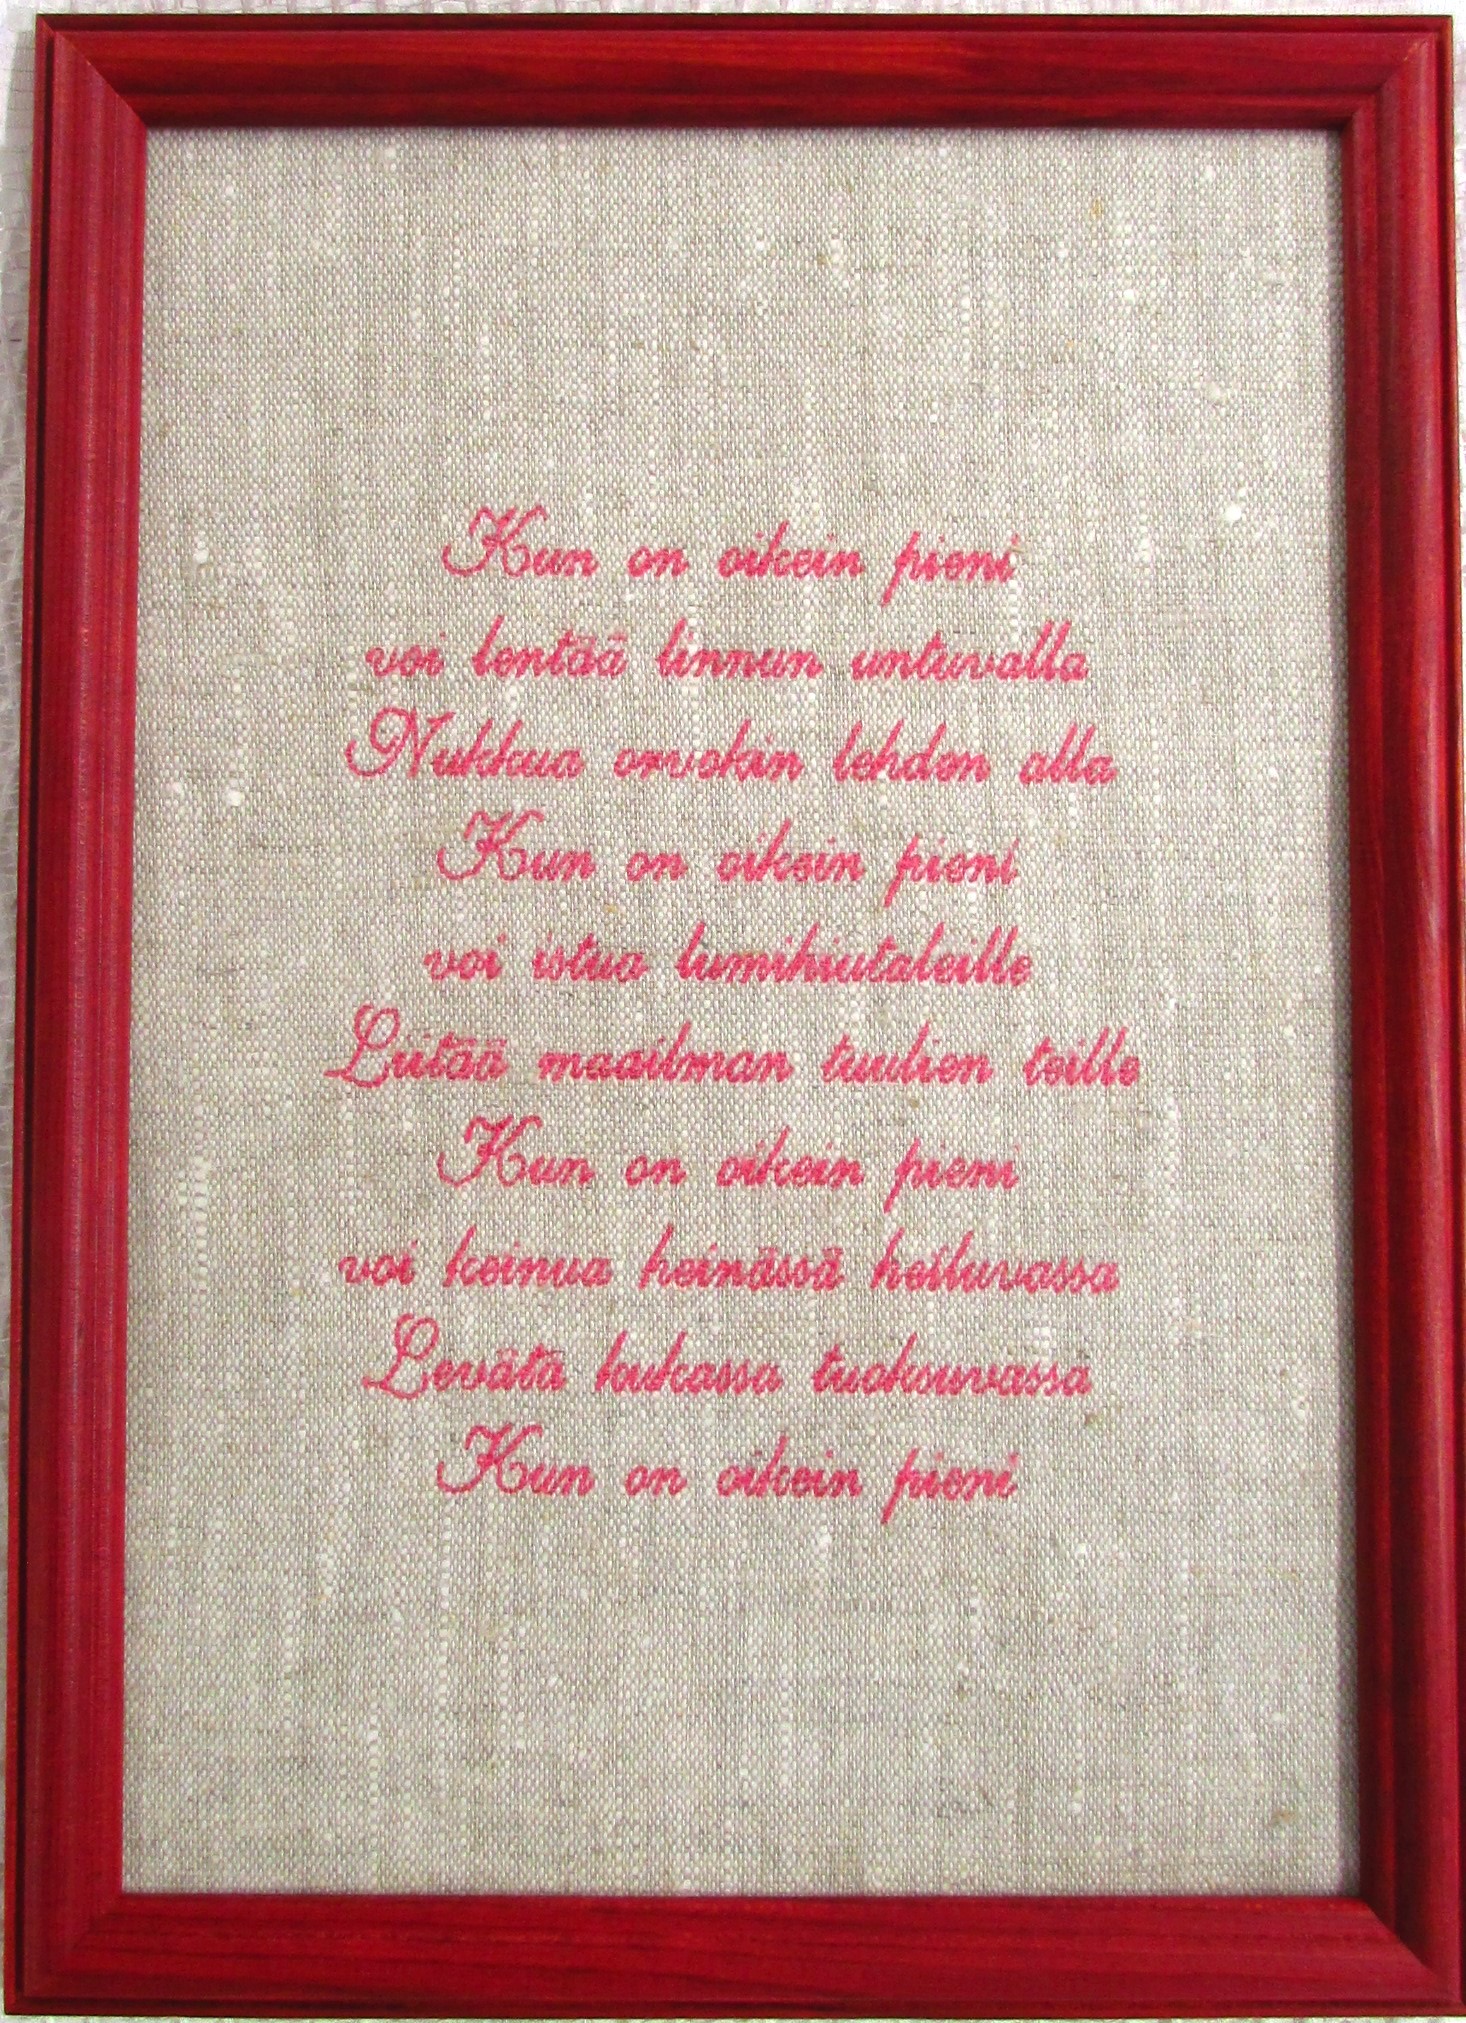 Kun on oikein pieni
voi lentää linnun untuvalla
Nukkua orvokin lehden alla
Kun on oikein pieni
voi istua lumihiutaleille
Liitää maailman tuulien teille
Kun on oikein pieni
voi keinua heinässä heiluvassa
Levätä kukassa tuoksuvassa
Kun on oikein pieni